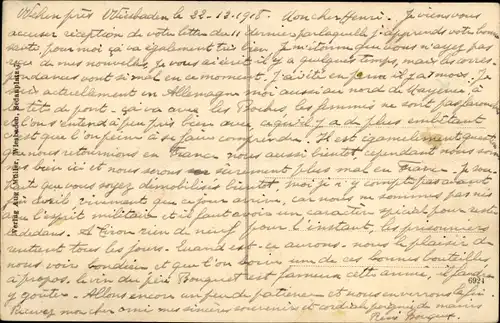 Wehen près Wiesbaden le 22-12-1918. Mon cher Henri. Je viens vous
accuser réception de votre lettre du 11 dernier par laquelle j'apprends votre bonne
santé, pour moi ça va également très bien. Je m'étonne que vous n'ayez pas
reçu de mes nouvelles, je vous ai écrit il y a quelques temps, mais les corres-
pondances vont si mal en ce moment. J'ai été en perm il y a 1 mois. Je
suis actuellement en Allemagne moi aussi au nord de Mayence à
la tête de pont. Ça va avec les Boches, les femmes ne sont pas farouches
et l'on s'entend à peu près bien avec ce qu'il y a de plus embêtant
c'est que l'on peine à se faire comprendre. Il est également question
que nous retournions en France nous aussi bientôt, cependant nous sommes
bien ici et nous serons sûrement plus mal en France. Je sou-
haite que vous soyez démobilisés bientôt, moi je n'y compte pas avant
Avril vivement que ce jour arrive, car nous ne sommes pas nés
l'esprit militaire et il faut avoir un caractère spécial pour rester
dedans. A Giron rien de neuf pour l'instant, les prisonniers
rentrent tous les jours. Quand est-ce aurons-nous le plaisir de
nous voir et que l'on boira une de ces bonnes bouteilles
à propos, le vin du père Bouquet est fameux cette année, il faudra
y goûter. Allons encore un peu de patience et nous enverrons la fin
Recevez mon cher ami mes sincères souvenirs et cordiale poignée de mains
Verlag Aug. Müller, Wiesbaden, Sedanplatz
6924